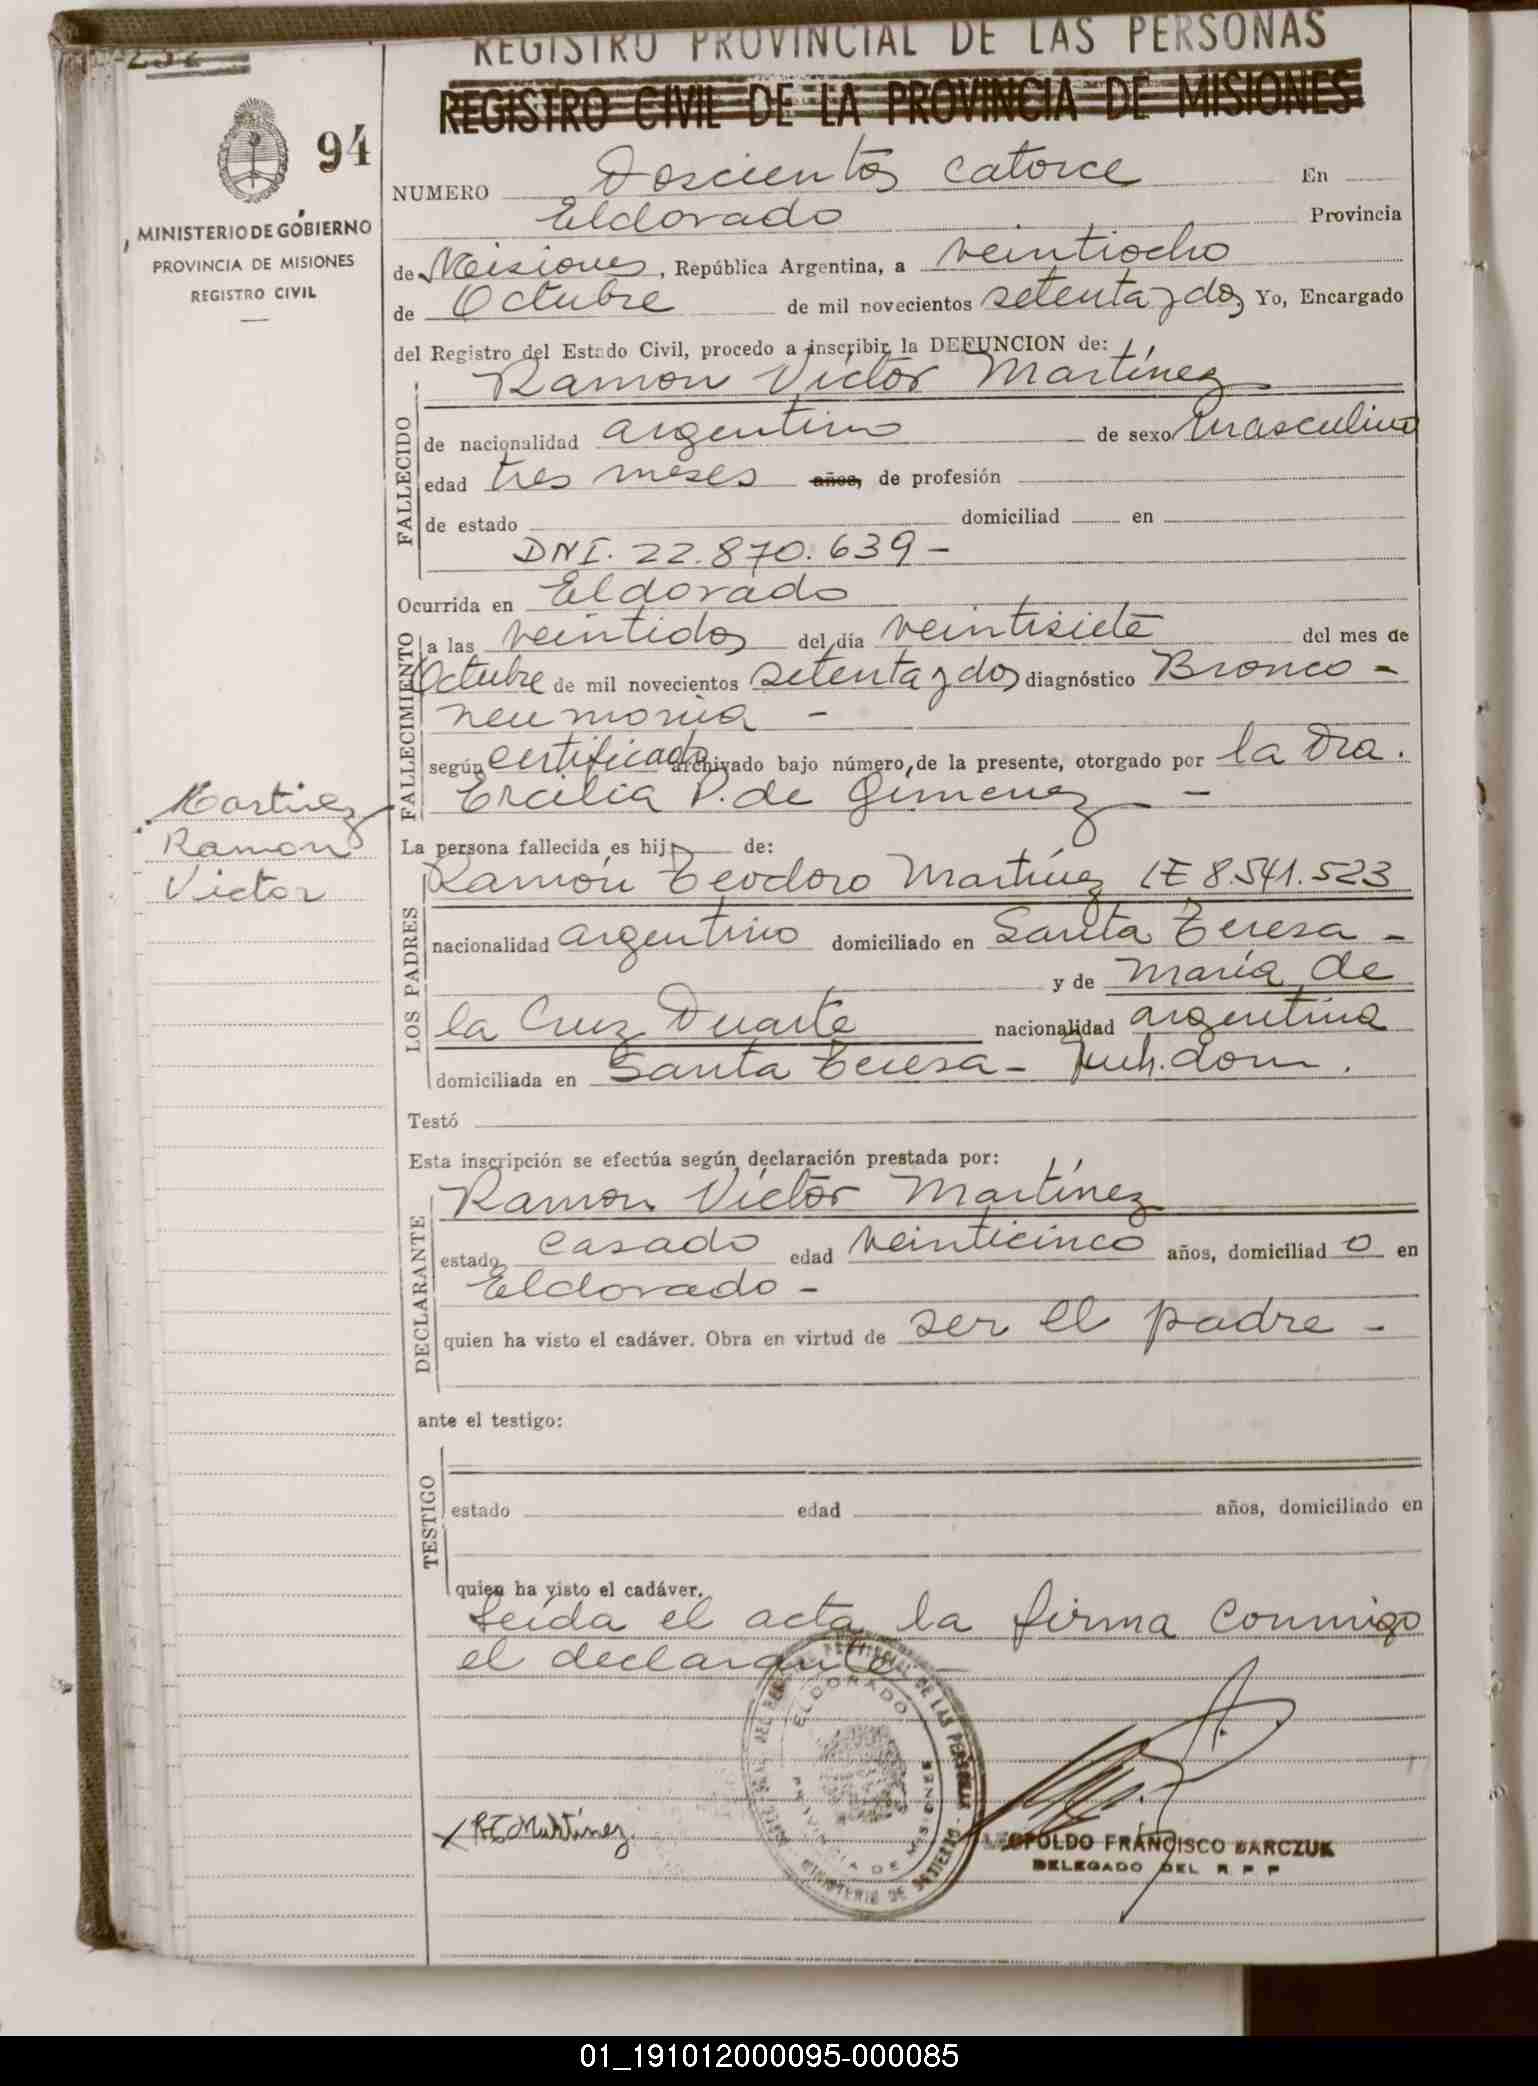 REGISTRO PROVINCIAL DE LAS PERSONAS
232
REGISTRO CIVIL DE LA PROVINCIA DE MISIONES
94
MINISTERIO DE GOBIERNO
PROVINCIA DE MISIONES
REGISTRO CIVIL
NUMERO Doscientos catorce En
Eldorado Provincia
de Misiones, República Argentina, a veintiocho
de Octubre de mil novecientos setenta y dos Yo, Encargado
del Registro del Estado Civil, procedo a inscribir la DEFUNCION de:
Ramon Víctor Martínez
FALLECIDO
de nacionalidad argentino de sexo Masculino
edad tres meses años, de profesión
de estado domiciliad en
DNI. 22.870.639 -
Ocurrida en Eldorado
FALLECIMIENTO
a las veintidos del día veintisiete del mes de
Octubre de mil novecientos setenta y dos diagnóstico Bronco -
neumonia -
según certificado archivado bajo número de la presente, otorgado por la Dra.
Ercilia P. de Gimenez -
Martinez
Ramon
Victor
La persona fallecida es hijo de:
LOS PADRES
Ramón Teodoro Martínez LE 8.541.523
nacionalidad argentino domiciliado en Santa Teresa -
y de María de
la Cruz Duarte nacionalidad argentina
domiciliada en Santa Teresa - dom.
Testó
Esta inscripción se efectúa según declaración prestada por:
DECLARANTE
Ramon Víctor Martínez
estado casado edad veinticinco años, domiciliad o en
Eldorado -
quien ha visto el cadáver. Obra en virtud de ser el padre -
ante el testigo:
TESTIGO
estado edad años, domiciliado en
quien ha visto el cadáver.
Leída el acta la firma conmigo
el declarante -
ELDORADO
PROVINCIA DE MISIONES
MINISTERIO DE GOBIERNO
RT Martínez
LEOPOLDO FRANCISCO BARCZUK
DELEGADO DEL R P P
01_191012000095-000085